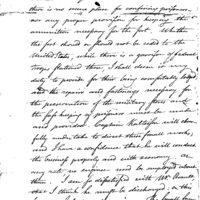 there is no secure place for confining prisoners,
nor any proper provision for keeping the
ammunition necessary for the fort. Whether
the fort should or should not be ceded to the
United States, while there is a garrison of federal
troops stationed there, I shall deem it my
duty to provide for their being comfortably lodged
and the repairs and fastenings necessary for
the preservation of the military stores and
the safe keeping of prisoners must be made
and provided. Captain Kalteisen will cheer
fully under take to direct these small works,
and I have a confidence that he will conduct
the business properly and with economy
any not be employed about
them. I am so dissatisfied with Mr
that I think he must be discharged, on this